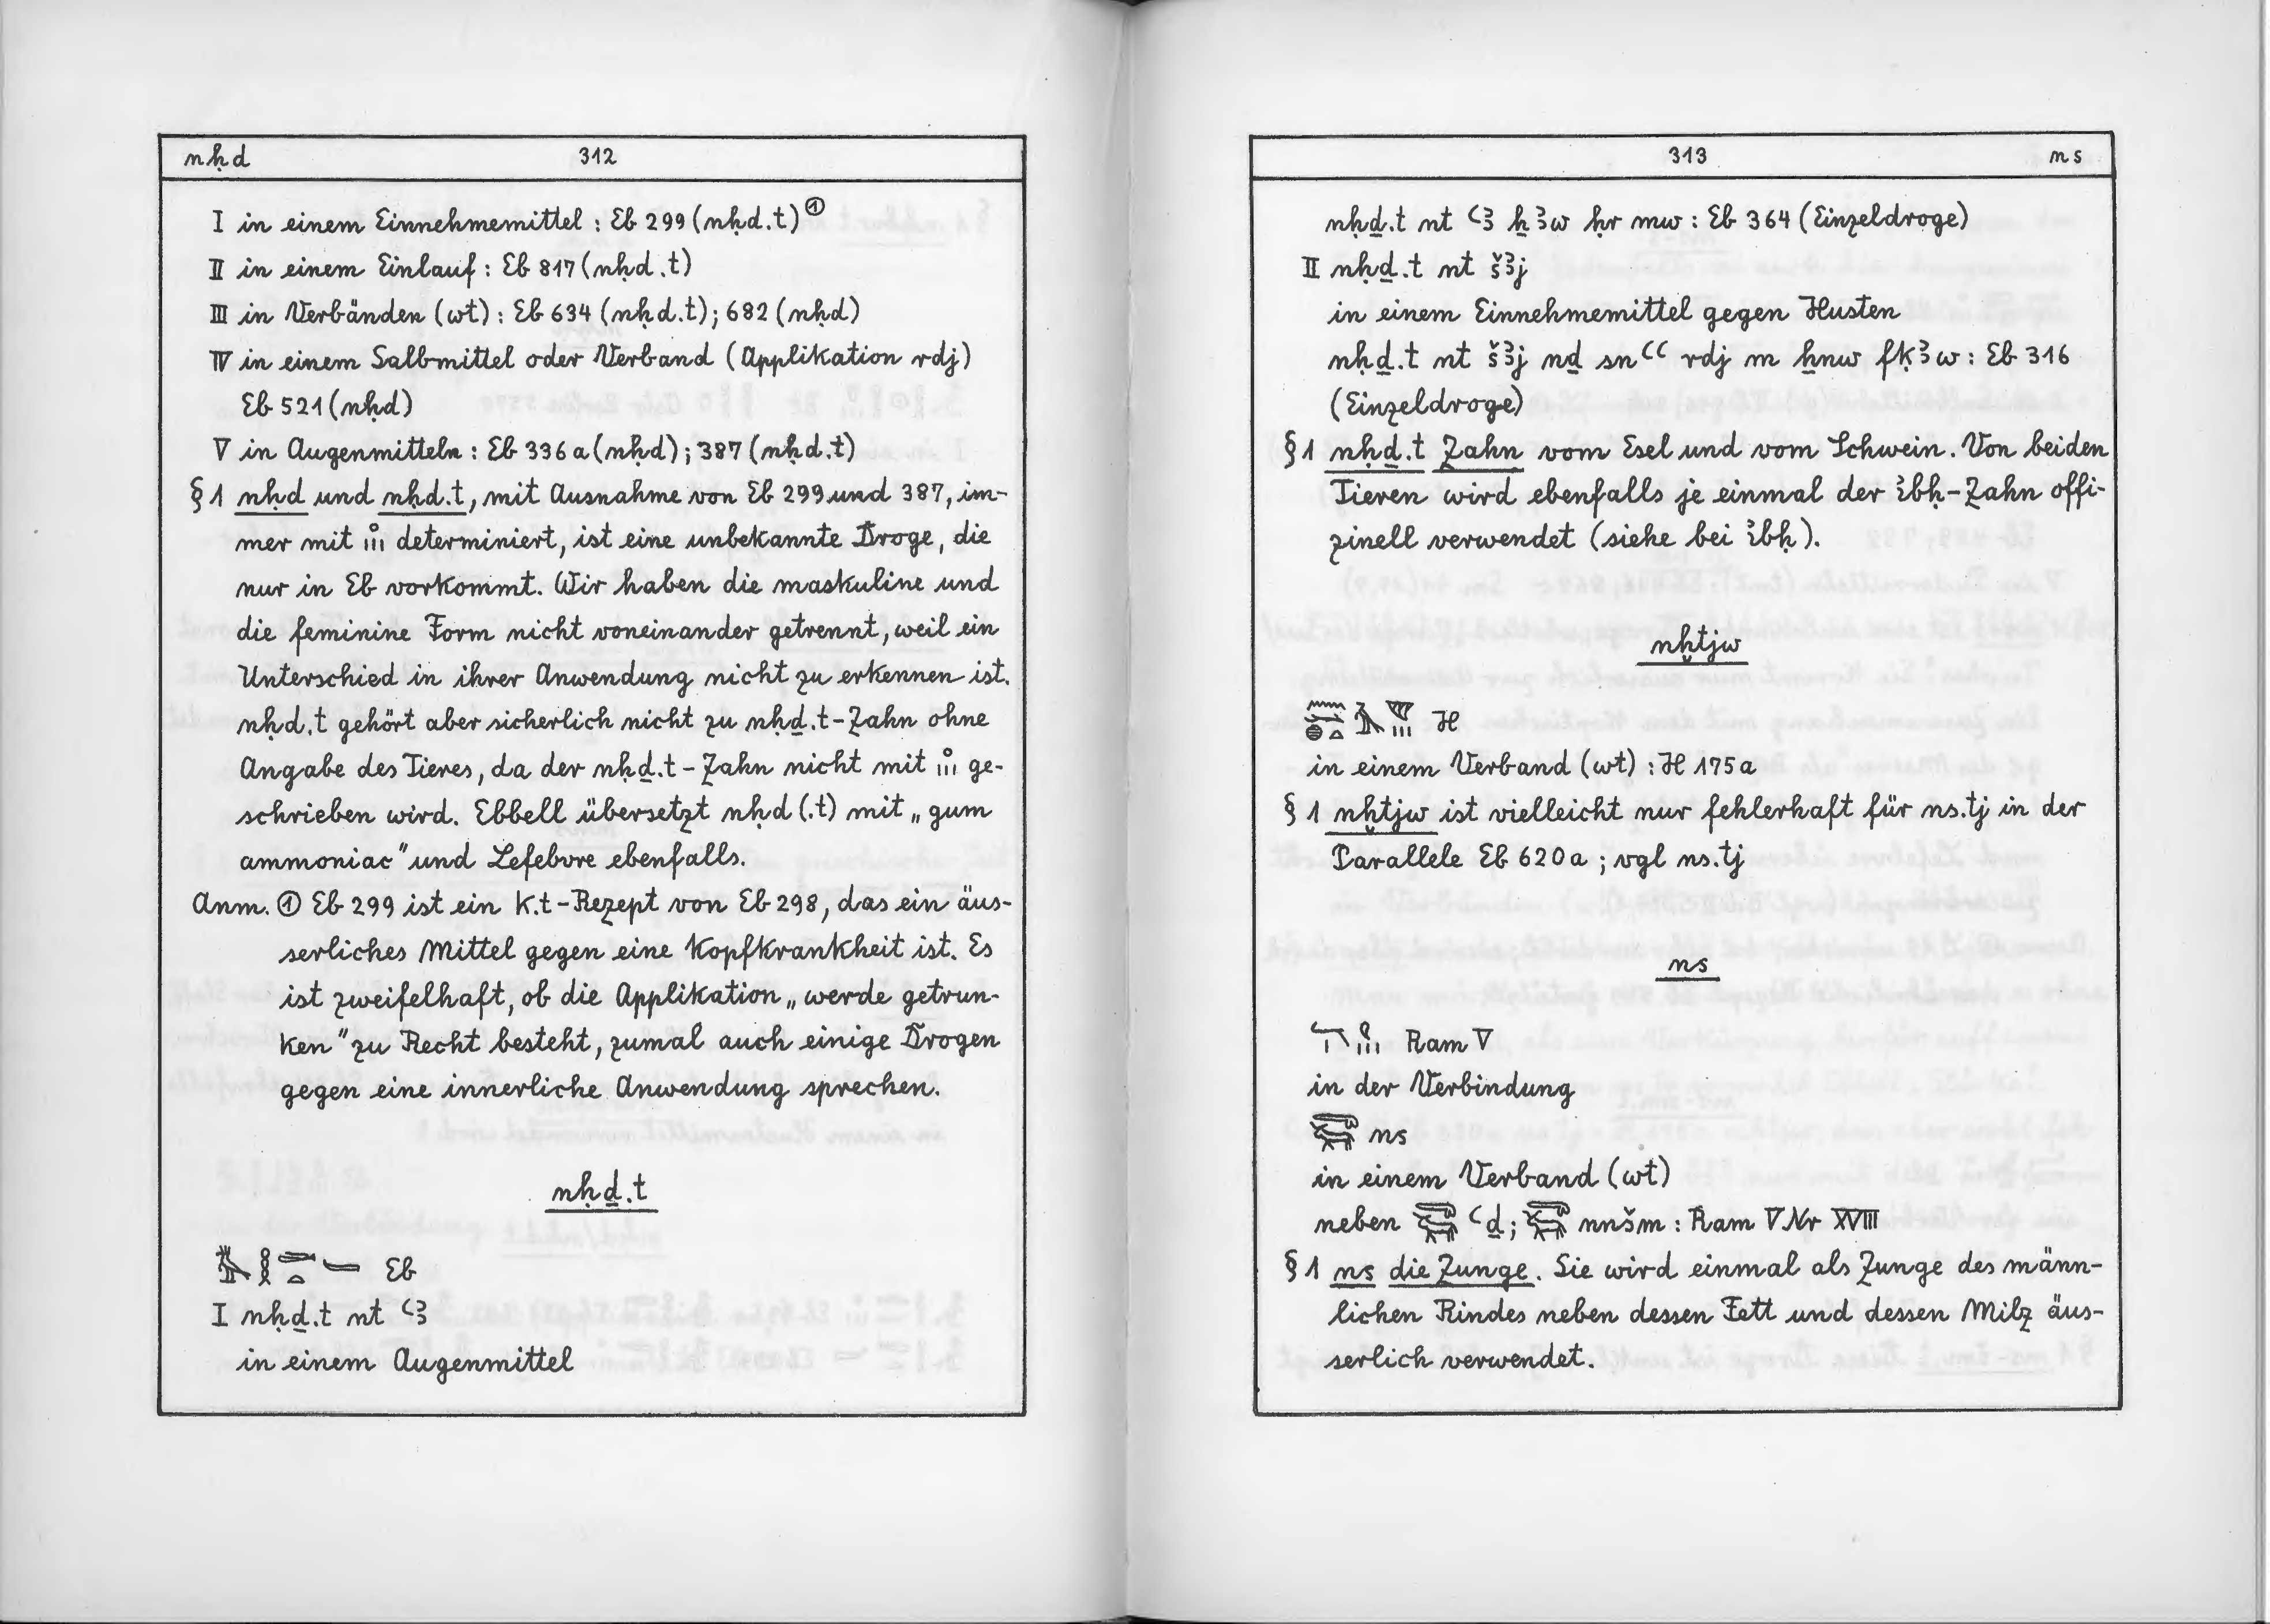 nḥd 312
I in einem Einnehmemittel : Eb 299 (nḥd.t)①
II in einem Einlauf : Eb 817 (nḥd.t)
III in Verbänden (wt) : Eb 634 (nḥd.t); 682 (nḥd)
IV in einem Salbmittel oder Verband (Applikation rdj)
Eb 521 (nḥd)
V in Augenmitteln : Eb 336 a (nḥd); 387 (nḥd.t)
§ 1 nḥd und nḥd.t, mit Ausnahme von Eb 299 und 387, im-
mer mit determiniert, ist eine unbekannte Droge, die
nur in Eb vorkommt. Wir haben die maskuline und
die feminine Form nicht voneinander getrennt, weil ein
Unterschied in ihrer Anwendung nicht zu erkennen ist.
nḥd.t gehört aber sicherlich nicht zu nḥḏ.t-Zahn ohne
Angabe des Tieres, da der nḥḏ.t-Zahn nicht mit ge-
schrieben wird. Ebbell übersetzt nḥd(.t) mit „gum
ammoniac" und Lefebvre ebenfalls.
Anm. ① Eb 299 ist ein k.t-Rezept von Eb 298, das ein äus-
serliches Mittel gegen eine Kopfkrankheit ist. Es
ist zweifelhaft, ob die Applikation „werde getrun-
ken" zu Recht besteht, zumal auch einige Drogen
gegen eine innerliche Anwendung sprechen.
nḥḏ.t
Eb
I nḥḏ.t nt ꜥꜣ
in einem Augenmittel
313 ns
nḥḏ.t nt ꜥꜣ ẖꜣw ḥr mw : Eb 364 (Einzeldroge)
II nḥḏ.t nt šꜣj
in einem Einnehmemittel gegen Husten
nḥḏ.t nt šꜣj nḏ snꜥꜥ rdj m ẖnw fḳꜣw : Eb 316
(Einzeldroge)
§ 1 nḥḏ.t Zahn vom Esel und vom Schwein. Von beiden
Tieren wird ebenfalls je einmal der ꞽbḥ-Zahn offi-
zinell verwendet (siehe bei ꞽbḥ).
nḫtjw
H
in einem Verband (wt) : H 175 a
§ 1 nḫtjw ist vielleicht nur fehlerhaft für ns.tj in der
Parallele Eb 620 a ; vgl ns.tj
ns
Ram V
in der Verbindung
ns
in einem Verband (wt)
neben ꜥḏ; nnšm : Ram V Nr XVIII
§ 1 ns die Zunge. Sie wird einmal als Zunge des männ-
lichen Rindes neben dessen Fett und dessen Milz äus-
serlich verwendet.